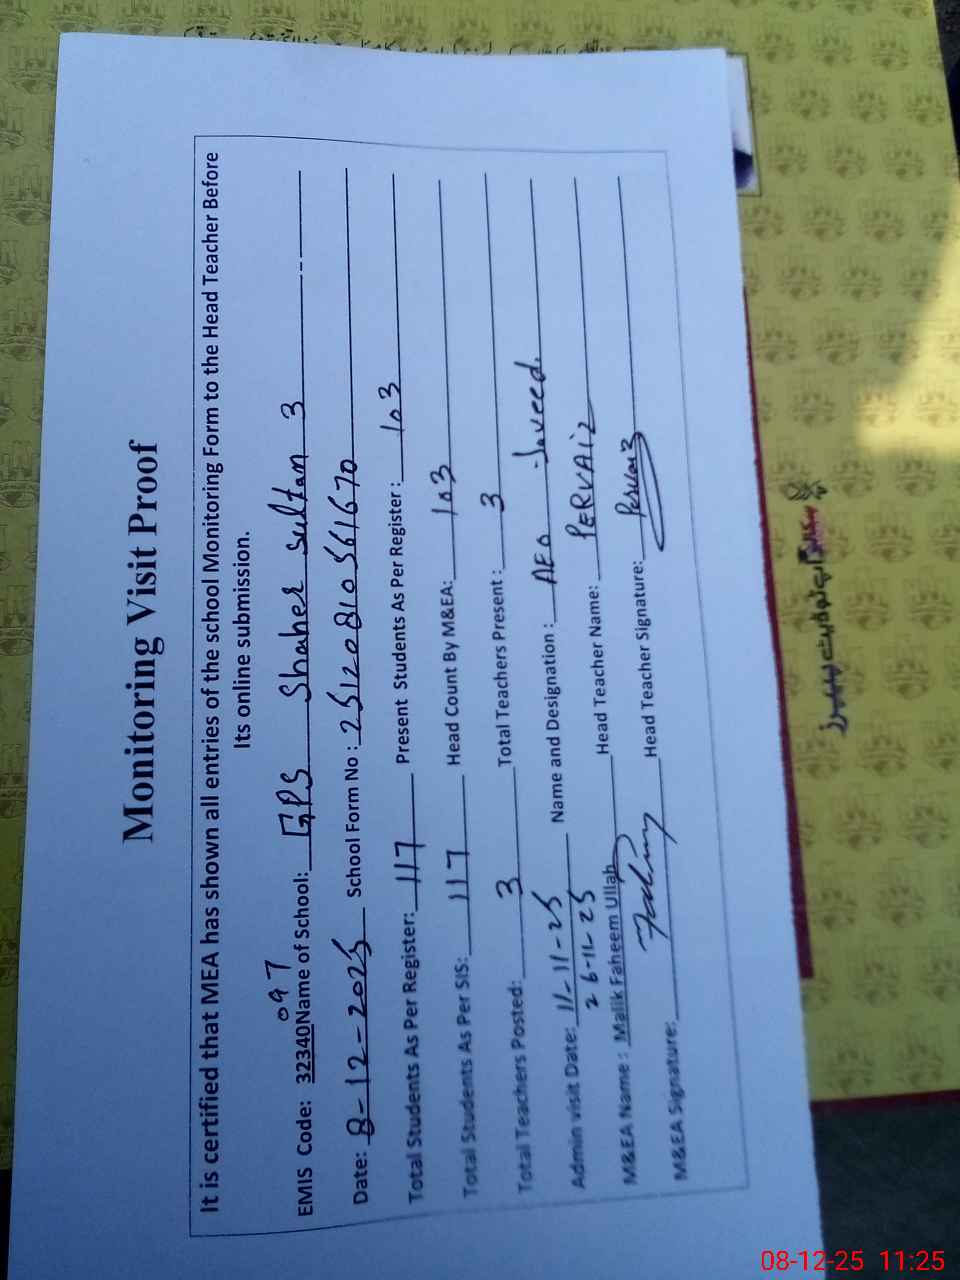 Monitoring Visit Proof
It is certified that MEA has shown all entries of the school Monitoring Form to the Head Teacher Before
Its online submission.
EMIS Code: 32340097 Name of School: GPS Shaher Sultan 3
Date: 8-12-2025 School Form No : 2512081056 1670
Total Students As Per Register: 117 Present Students As Per Register : 103
Total Students As Per SIS: 117 Head Count By M&EA: 103
Total Teachers Posted: 3 Total Teachers Present : 3
Admin visit Date: 11-11-25 Name and Designation : AEO Javeed.
26-11-25
M&EA Name : Malik Faheem Ullah Head Teacher Name: PERVAIZ
M&EA Signature: Head Teacher Signature: Pervaiz
08-12-25 11:25